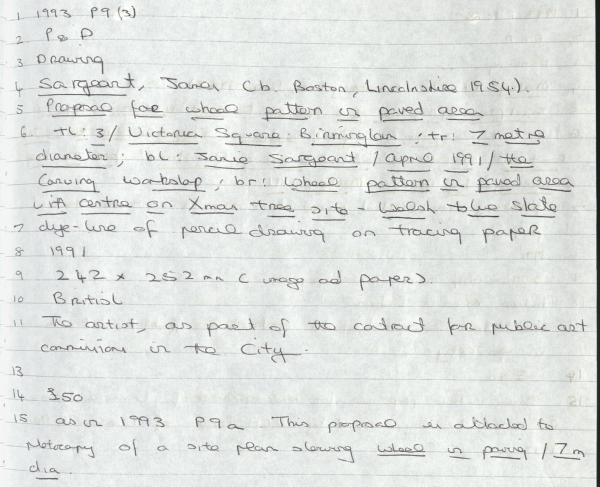 1 1993 P9 (3)
2 P & D
3 Drawing
4 Sargeant, Janes (b. Boston, Lincolnshire 1954.).
5 Proposal for wheel pattern in paved area
6. tL: 3/ Victoria Square Birmingham; tr: 7 metre
diameter; bL: Janie Sargeant / April 1991 / the
Carving workshop; br: wheel pattern in paved area
with centre on Xmas tree site - Welsh blue slate
7 dye-line of pencil drawing on tracing paper
8 1991
9 242 x 252 mm (image and paper).
10 British
11 The artist, as part of the contract for public art
commissions in the City.
13
14 £50
15 as in 1993 P9a This proposal is attached to
photocopy of a site plan showing wheel in paving / 7m
dia.